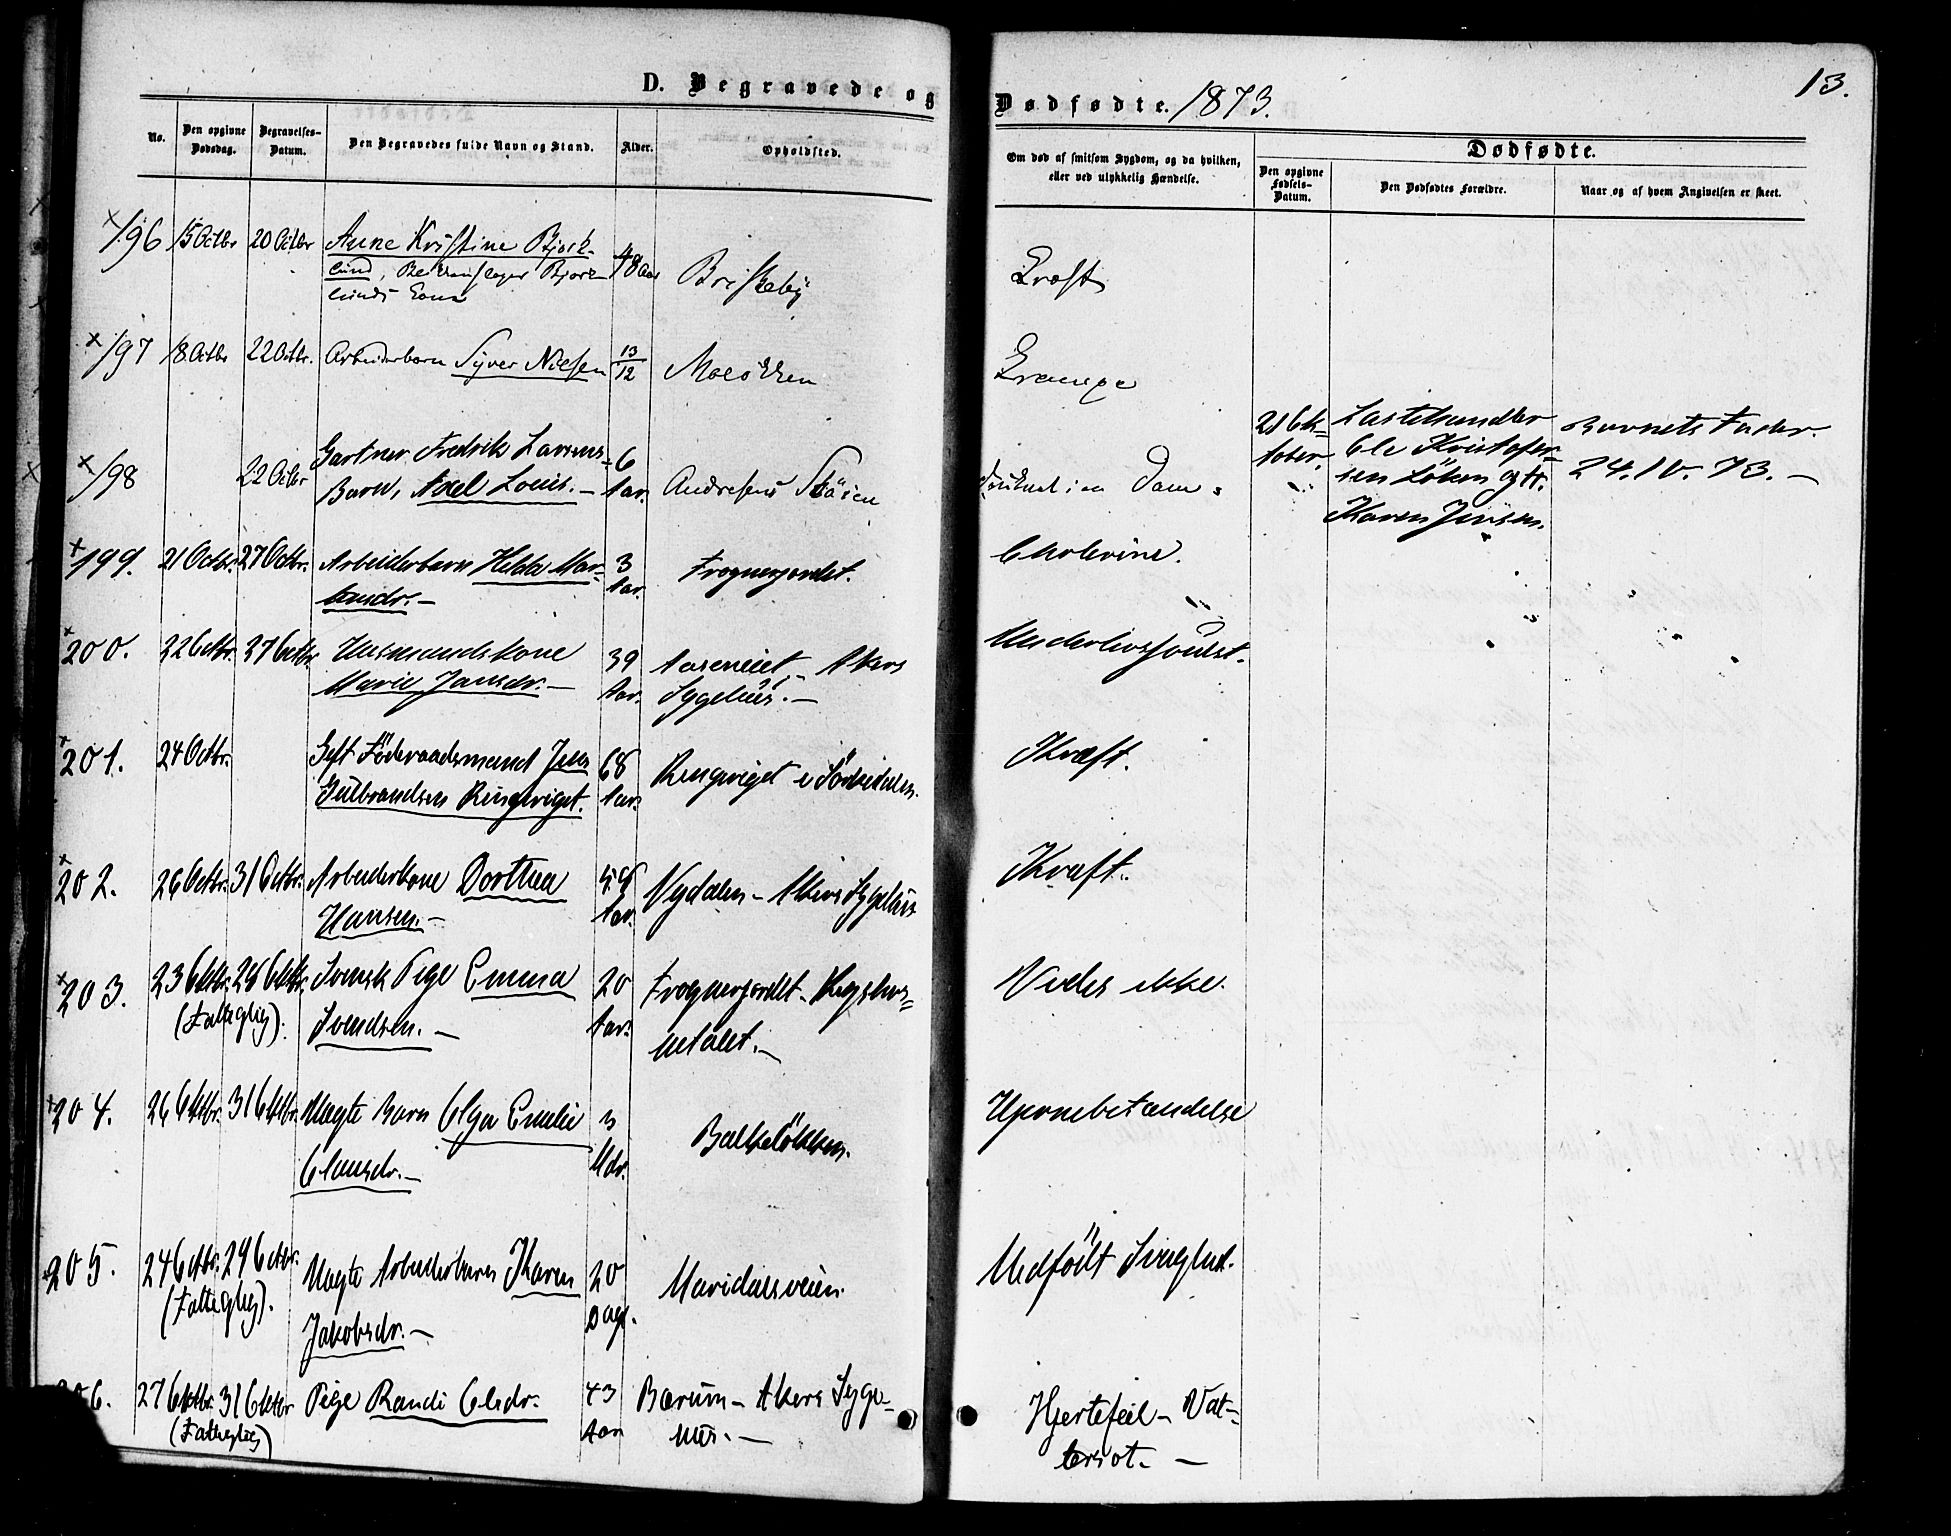 D. Begravede og
Dødfødte. 1873.
13.
No.
Den opgivne Dødsdag.
Begravelses-Datum.
Den Begravedes fulde Navn og Stand.
Alder.
Opholdsted.
Om død af smitsom Sygdom, og da hvilken,
eller ved ulykkelig Hændelse.
Dødfødte.
Den opgivne Fødsels-Datum.
Den Dødfødtes Forældre.
Naar og af hvem Angivelsen er skeet.
196 15 Octbr 20 Octbr Anne Kristine Bjork-
lund, Bjork-
lunds Kone
48 Aar
Briskeby
Kræft
197 18 Octbr 22 Octbr. Arbeiderbarn Syver Nielsen 13/12
Krampe
198 22 Octbr Gartner Fredrik Larsens
Barn, Axel Louis. –
6
Aar.
Andresens
druknet i en Dam.
21 Ok-
tober.
Ole Kristofer-
sen Løken og H.
Karen Jensen.
Barnets Fader.
24.10.73. –
199. 21 Octbr. 27 Octbr. Arbeiderbarn Hilda Mar-
3
Aar.
Frognerjordet.
Cholerine.
200. 22 Octbr. 27 Octbr. Husmandskone
Marie Jansdr. –
39
Aar.
Akers
Sygehus. –
Underlivssvulst.
201. 24 Octbr. Gift Föderaadsmand Jens
Gulbrandsen Ringeriget.
68
Aar.
Ringeriget i Sörkedalen.
Kræft.
202. 26 Octbr. 31 Octbr. Arbeiderkone Dorthea
Hansen. –
Aar.
Nydalen – Akers Sygehus
Kræft.
203. 23 Oktbr. 28 Oktbr. Svensk Pige Emma
(Fattiglig).
Svendsen. –
20
Aar.
Frognerjordet.
Vides ikke.
204. 26 Oktbr. 31 Oktbr. Uægte Barn Olga Emilie
Olausdr. –
3
Mdr.
Balkelökken.
Hjernebetændelse
205. 24 Octbr. 29 Octbr. Uægte Arbeiderbarn Karen
(Fattiglig).
Jakobsdr. –
20
Dage.
Maridalsveien.
Medfödt Svaghed.
206. 27 Oktbr. 31 Oktbr Pige Randi Olsdr.
(Fattiglig)
43
Aar
Bærum – Akers Syge-
hus. –
Hjertefeil – Vat-
tersot. –